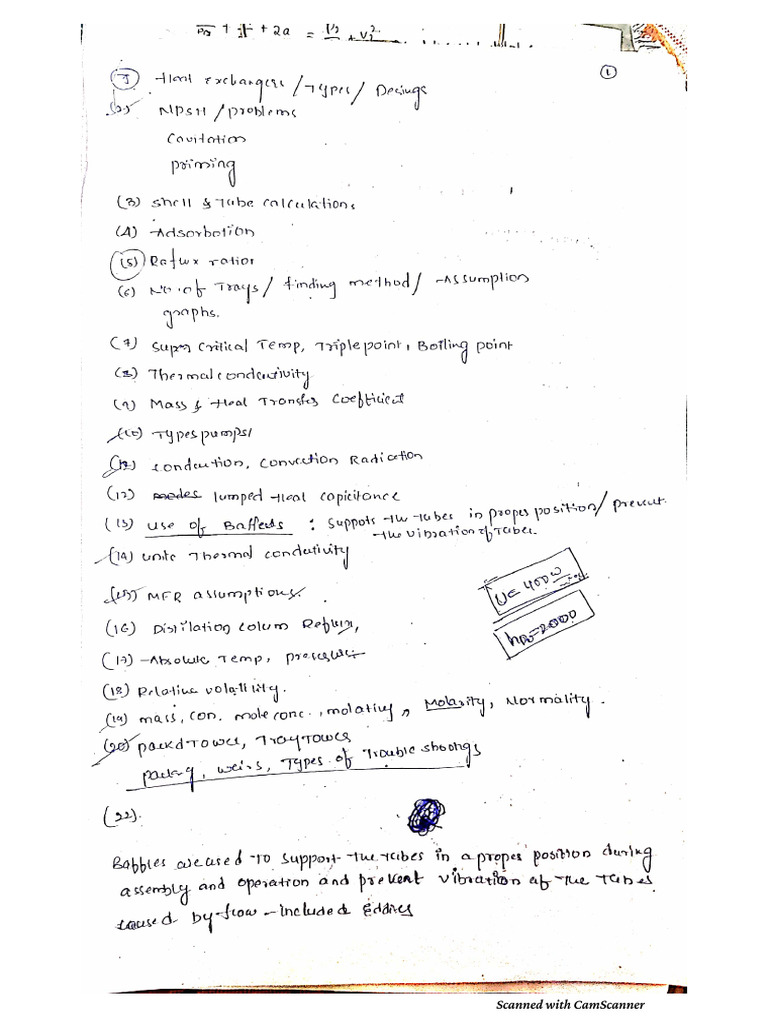 + + 2a = + V₂²
①
(1) Heat Exchangers / Types / Desings
(2) NPSH / problems
Cavitation
priming
(3) Shell & Tube calculations
(4) Adsorbotion
(5) Reflux ratior
(6) No. of Trays / finding method / Assumption
graphs.
(7) Super Critical Temp, Triple point, Boiling point
(8) Thermal conductivity
(9) Mass & Heat Transfer Coefficient
(10) Types pumps/
(12) conduction, Convection Radiation
(12) modes lumped Heat capicitance
(13) Use of Baffects : Supports the tubes in proper position / prevent
the vibration of Tubes.
(14) units Thermal conductivity
(15) MFR assumptions.
U = 400 W
(16) Distilation Colum Reflux,
h = 2000
(17) Absolute Temp, pressure
(18) Relative volatility.
(19) mass, con. mole conc., molatity, Molarity, Normality.
(20) packd Tower, Tray Tower
packing, weirs, Types of Trouble shoongs
(22).
Baffles are used To support the tubes in a proper position during
assembly and operation and prevent vibration of the tubes
caused by flow-included Eddies
Scanned with CamScanner